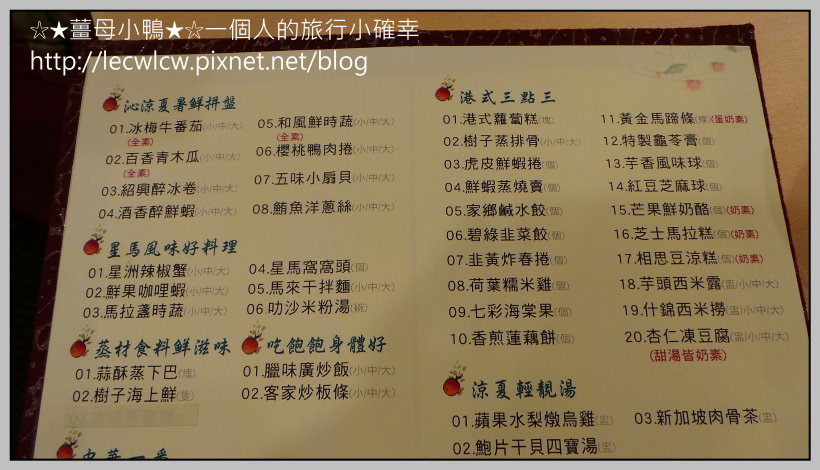 ☆★薑母小鴨★☆一個人的旅行小確幸
http://lecwlcw.pixnet.net/blog
沁涼夏暑鮮拼盤
01.冰梅牛番茄(小/中/大)
(全素)
02.百香青木瓜(小/中/大)
(全素)
03.紹興醉冰卷(小/中/大)
04.酒香醉鮮蝦(小/中/大)
05.和風鮮時蔬(小/中/大)
(全素)
06.櫻桃鴨肉捲(小/中/大)
07.五味小扇貝(小/中/大)
08.鮪魚洋蔥絲(小/中/大)
星馬風味好料理
01.星洲辣椒蟹(小/中/大)
02.鮮果咖哩蝦(小/中/大)
03.馬拉盞時蔬(小/中/大)
04.星馬窩窩頭(個)
05.馬來干拌麵(小/中/大)
06.叻沙米粉湯(碗)
蒸材食料鮮滋味
01.蒜酥蒸下巴(塊)
02.樹子海上鮮(隻)
吃飽飽身體好
01.臘味廣炒飯(小/中/大)
02.客家炒板條(小/中/大)
中華一番
港式三點三
01.港式蘿蔔糕(塊)
02.樹子蒸排骨(小/中/大)
03.虎皮鮮蝦捲(個)
04.鮮蝦蒸燒賣(個)
05.家鄉鹹水餃(個)
06.碧綠韭菜餃(個)
07.韭黃炸春捲(個)
08.荷葉糯米雞(個)
09.七彩海棠果(個)
10.香煎蓮藕餅(個)
11.黃金馬蹄條(條)(蛋奶素)
12.特製龜苓膏(個)
13.芋香風味球(個)
14.紅豆芝麻球(個)
15.芒果鮮奶酪(個)(奶素)
16.芝士馬拉糕(個)(奶素)
17.相思豆涼糕(個)(奶素)
18.芋頭西米露(盅/小/中/大)
19.什錦西米撈(盅/小/中/大)
20.杏仁凍豆腐(盅/小/中/大)
(甜湯皆奶素)
涼夏輕靚湯
01.蘋果水梨燉烏雞(盅)
02.鮑片干貝四寶湯(盅)
03.新加坡肉骨茶(盅)